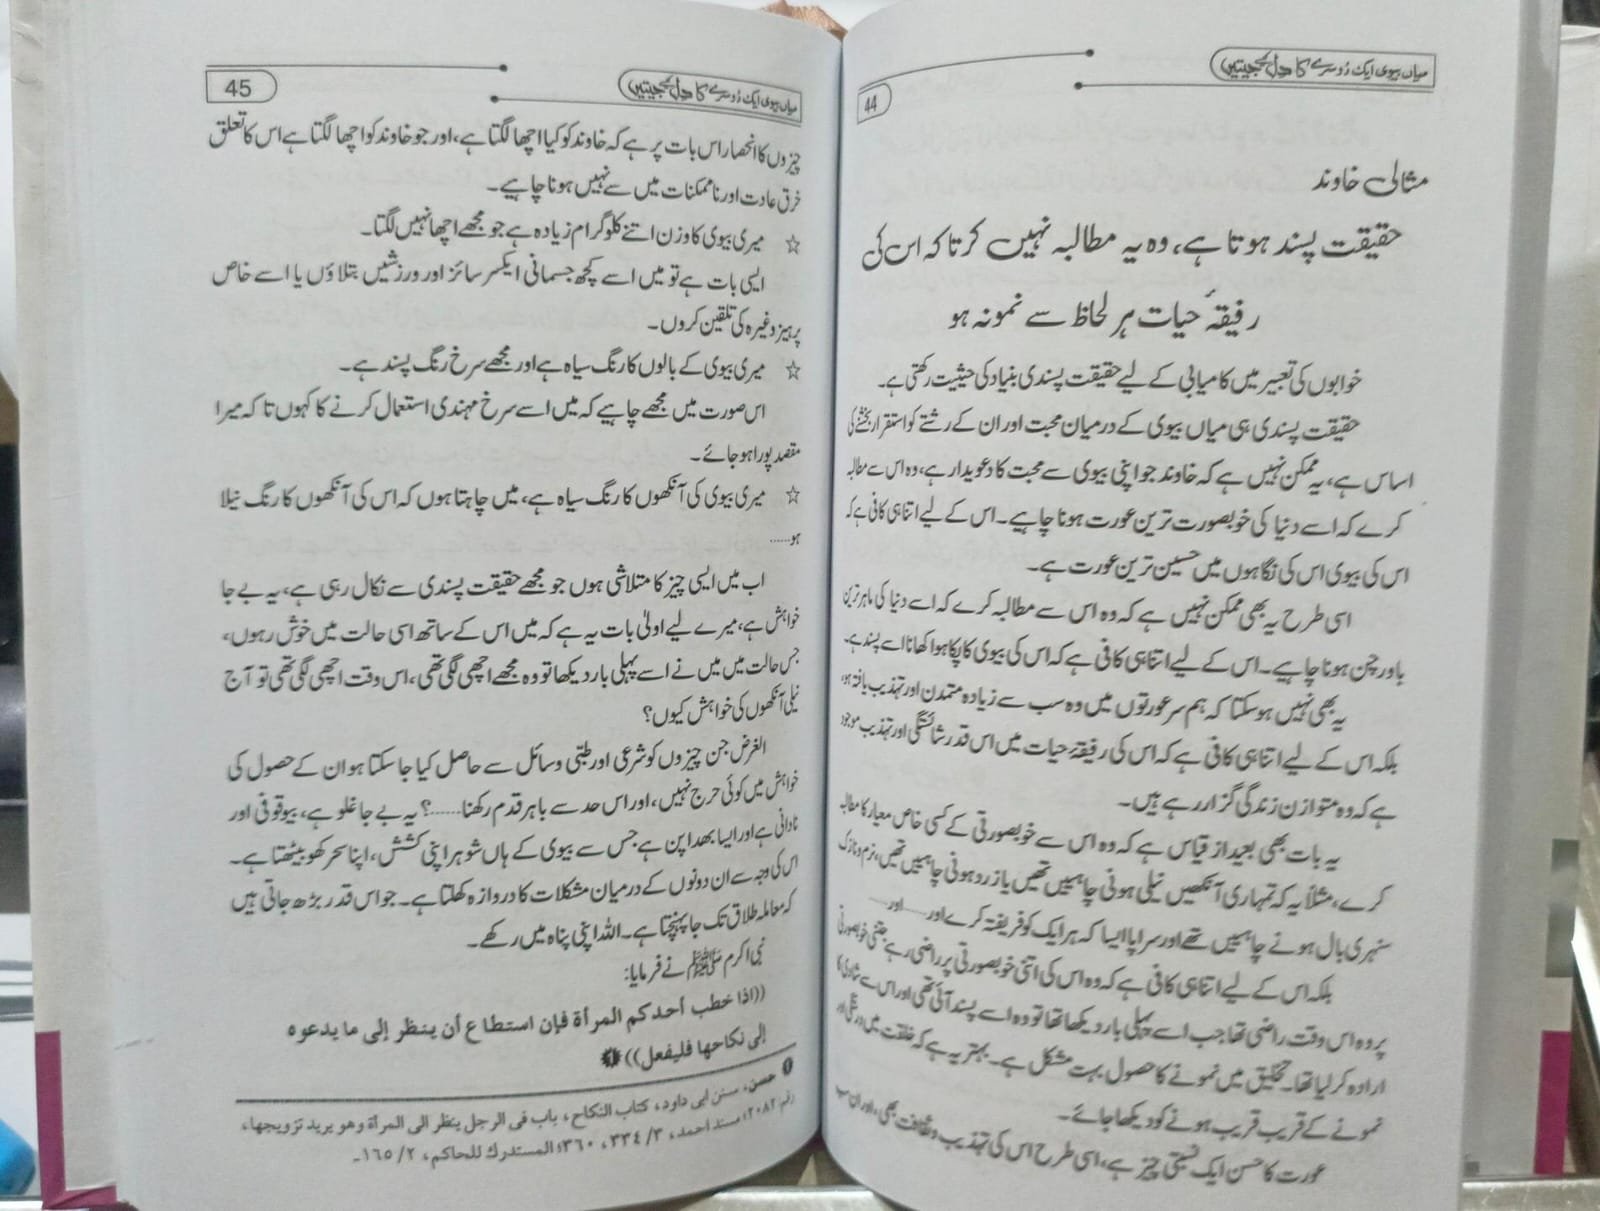 میاں بیوی ایک دوسرے کا دل کیسے جیتیں
44
مثالی خاوند
حقیقت پسند ہوتا ہے، وہ یہ مطالبہ نہیں کرتا کہ اس کی
رفیقۂ حیات ہر لحاظ سے نمونہ ہو
خوابوں کی تعبیر میں کامیابی کے لیے حقیقت پسندی بنیاد کی حیثیت رکھتی ہے۔
حقیقت پسندی ہی میاں بیوی کے درمیان محبت اور ان کے رشتے کو استقرار بخشنے کی
اساس ہے، یہ ممکن نہیں ہے کہ خاوند جو اپنی بیوی سے محبت کا دعویدار ہے، وہ اس سے مطالبہ
کرے کہ اسے دنیا کی خوبصورت ترین عورت ہونا چاہیے۔ اس کے لیے اتنا ہی کافی ہے کہ
اس کی بیوی اس کی نگاہوں میں حسین ترین عورت ہے۔
اسی طرح یہ بھی ممکن نہیں ہے کہ وہ اس سے مطالبہ کرے کہ اسے دنیا کی ماہر ترین
باورچن ہونا چاہیے۔ اس کے لیے اتنا ہی کافی ہے کہ اس کی بیوی کا پکا ہوا کھانا اسے پسند ہے۔
یہ بھی نہیں ہو سکتا کہ ہم سر عورتوں میں وہ سب سے زیادہ متمدن اور تہذیب یافتہ ہو،
بلکہ اس کے لیے اتنا ہی کافی ہے کہ اس کی رفیقۂ حیات میں اس قدر شائستگی اور تہذیب موجود
ہے کہ وہ متوازن زندگی گزار رہے ہیں۔
یہ بات بھی بعید از قیاس ہے کہ وہ اس سے خوبصورتی کے کسی خاص معیار کا مطالبہ
کرے، مثلاً یہ کہ تمہاری آنکھیں نیلی ہونی چاہییں تھیں یا زرد ہونی چاہییں تھیں، نرم و نازک
سنہری بال ہونے چاہییں تھے اور سراپا ایسا کہ ہر ایک کو فریفتہ کرے اور...... اور......
بلکہ اس کے لیے اتنا ہی کافی ہے کہ وہ اس کی اتنی خوبصورتی پر راضی رہے جتنی خوبصورتی
پر وہ اس وقت راضی تھا جب اسے پہلی بار دیکھا تھا تو وہ اسے پسند آئی تھی اور اس سے شادی کا
ارادہ کر لیا تھا۔ تخلیق میں نمونے کا حصول بہت مشکل ہے۔ بہتر یہ ہے کہ خلقت میں درستگی اور
نمونے کے قریب قریب ہونے کو دیکھا جائے۔
عورت کا حسن ایک نسبتی چیز ہے، اسی طرح اس کی تہذیب و ثقافت بھی، اور ان سب
میاں بیوی ایک دوسرے کا دل کیسے جیتیں
45
چیزوں کا انحصار اس بات پر ہے کہ خاوند کو کیا اچھا لگتا ہے، اور جو خاوند کو اچھا لگتا ہے اس کا تعلق
خرق عادت اور ناممکنات میں سے نہیں ہونا چاہیے۔
☆ میری بیوی کا وزن اتنے کلوگرام زیادہ ہے جو مجھے اچھا نہیں لگتا۔
ایسی بات ہے تو میں اسے کچھ جسمانی ایکسرسائز اور ورزشیں بتلاؤں یا اسے خاص
پرہیز وغیرہ کی تلقین کروں۔
☆ میری بیوی کے بالوں کا رنگ سیاہ ہے اور مجھے سرخ رنگ پسند ہے۔
اس صورت میں مجھے چاہیے کہ میں اسے سرخ مہندی استعمال کرنے کا کہوں تاکہ میرا
مقصد پورا ہو جائے۔
☆ میری بیوی کی آنکھوں کا رنگ سیاہ ہے، میں چاہتا ہوں کہ اس کی آنکھوں کا رنگ نیلا
ہو......
اب میں ایسی چیز کا متلاشی ہوں جو مجھے حقیقت پسندی سے نکال رہی ہے، یہ بے جا
خواہش ہے، میرے لیے اولیٰ بات یہ ہے کہ میں اس کے ساتھ اسی حالت میں خوش رہوں،
جس حالت میں میں نے اسے پہلی بار دیکھا تو وہ مجھے اچھی لگی تھی، اس وقت اچھی لگی تھی تو آج
نیلی آنکھوں کی خواہش کیوں؟
الغرض جن چیزوں کو شرعی اور طبی وسائل سے حاصل کیا جا سکتا ہو ان کے حصول کی
خواہش میں کوئی حرج نہیں، اور اس حد سے باہر قدم رکھنا......؟ یہ بے جا غلو ہے، بیوقوفی اور
نادانی ہے اور ایسا بھدا پن ہے جس سے بیوی کے ہاں شوہر اپنی کشش، اپنا سحر کھو بیٹھتا ہے۔
اس کی وجہ سے ان دونوں کے درمیان مشکلات کا دروازہ کھلتا ہے۔ جو اس قدر بڑھ جاتی ہیں
کہ معاملہ طلاق تک جا پہنچتا ہے۔ اللہ اپنی پناہ میں رکھے۔
نبی اکرم ﷺ نے فرمایا:
((اذا خطب أحدكم المرأة فإن استطاع أن ينظر إلى ما يدعوه
إلى نكاحها فليفعل)) ❶
❶ حسن، سنن ابی داود، کتاب النکاح، باب فی الرجل ینظر الی المرأة وهو یرید تزویجها،
رقم ۲۰۸۲؛ مسند احمد، ۳/ ۳۳٤، ۳٦۰؛ المستدرك للحاكم، ۲/ ۱٦٥۔